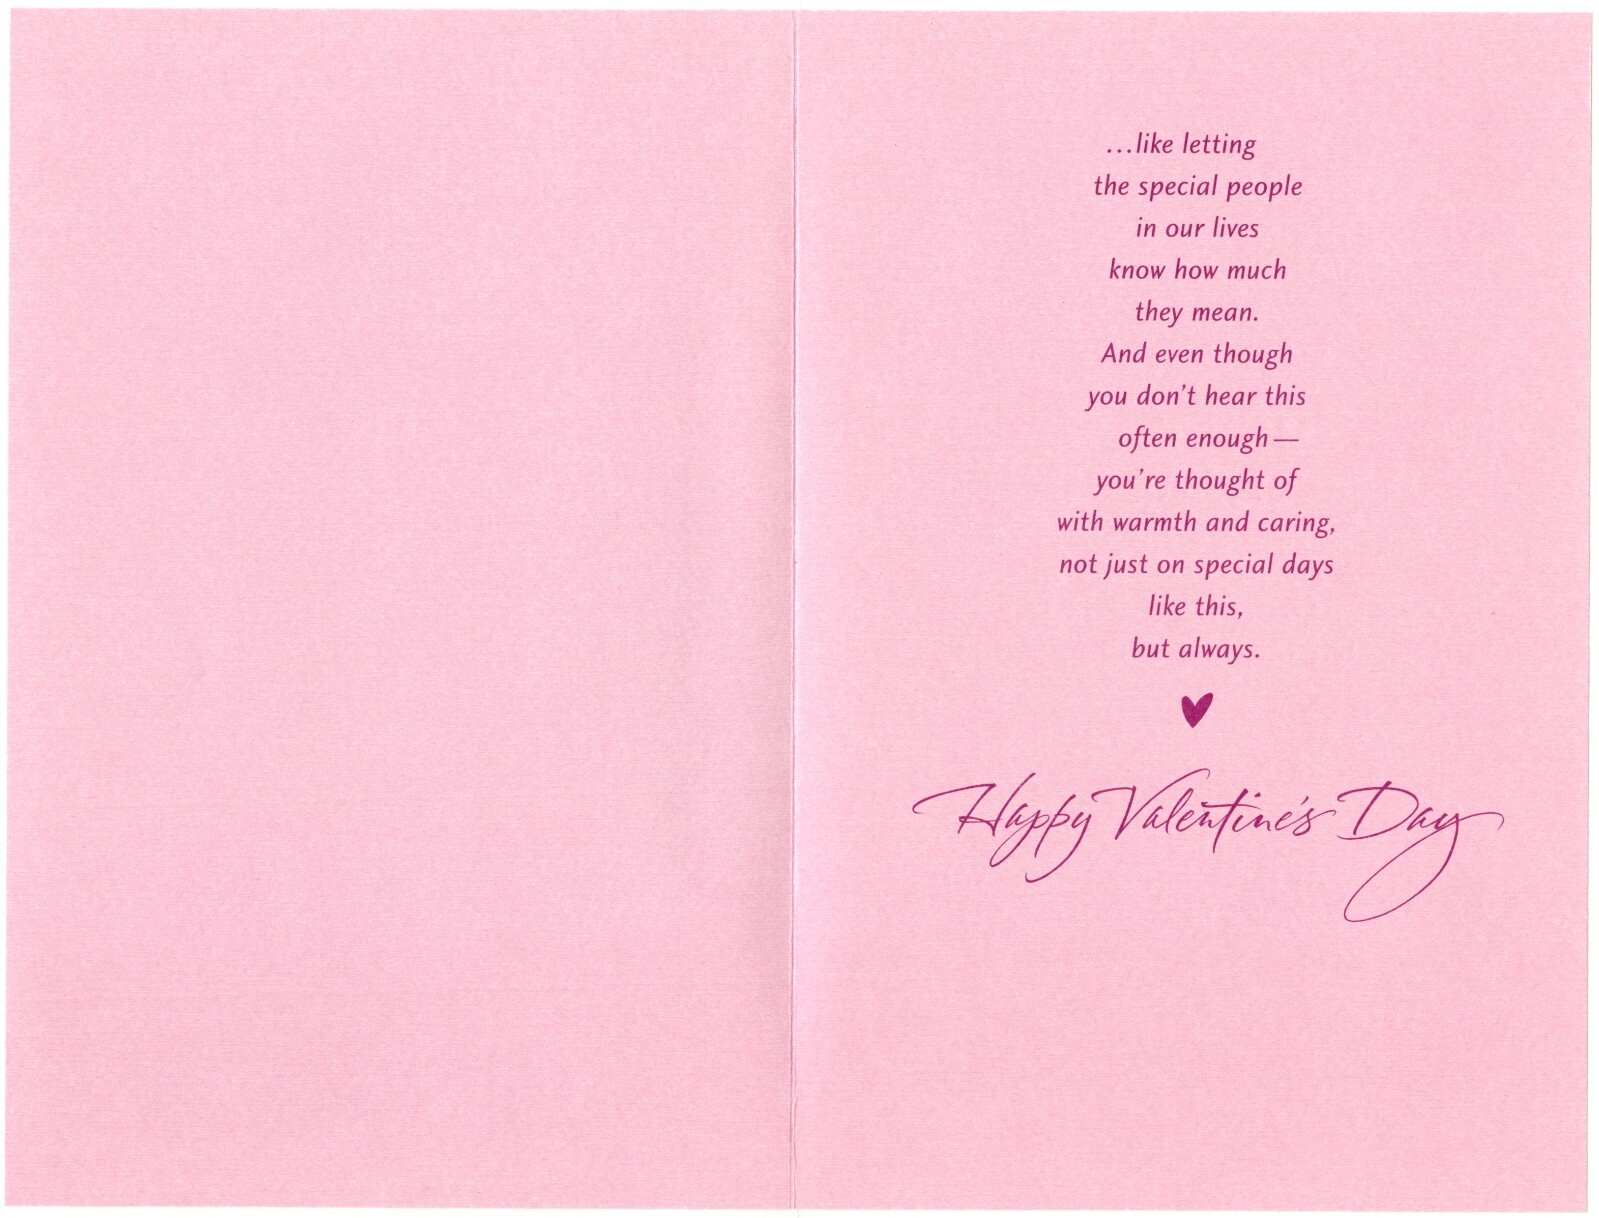 ...like letting
the special people
in our lives
know how much
they mean.
And even though
you don't hear this
often enough—
you're thought of
with warmth and caring,
not just on special days
like this,
but always.
Happy Valentine's Day